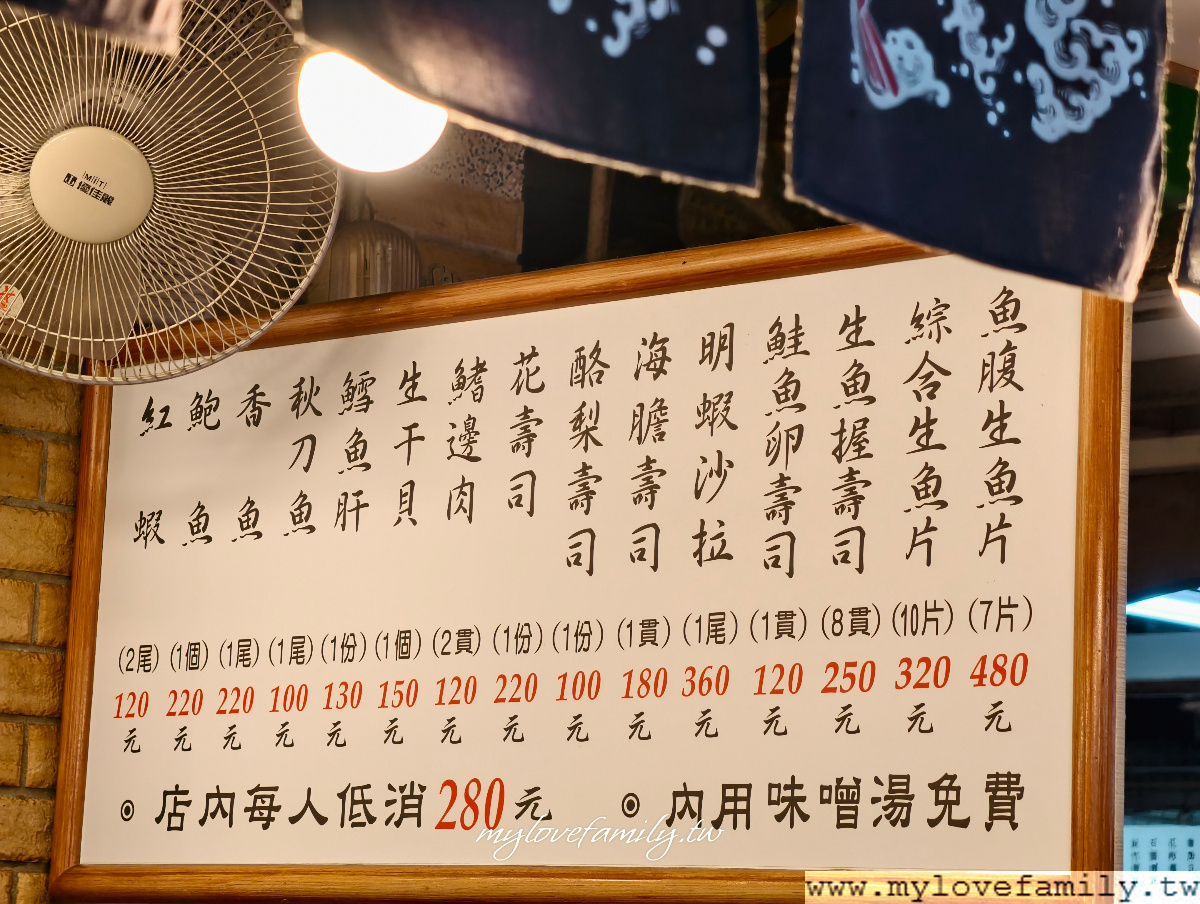 魚腹生魚片 (7片) 480元
綜合生魚片 (10片) 320元
生魚握壽司 (8貫) 250元
鮭魚卵壽司 (1貫) 120元
明蝦沙拉 (1尾) 360元
海膽壽司 (1貫) 180元
酪梨壽司 (1份) 100元
花壽司 (1份) 220元
鰭邊肉 (2貫) 120元
生干貝 (1個) 150元
鱈魚肝 (1份) 130元
秋刀魚 (1尾) 100元
香魚 (1尾) 220元
鮑魚 (1個) 220元
紅蝦 (2尾) 120元
◎ 店內每人低消280元
◎ 內用味噌湯免費
優佳麗
mylovefamily.tw
www.mylovefamily.tw